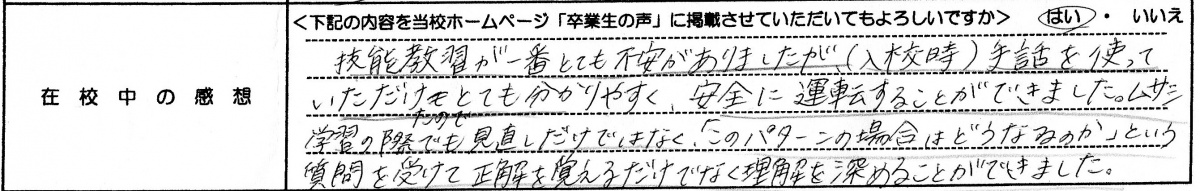 <下記の内容を当校ホームページ「卒業生の声」に掲載させていただいてもよろしいですか> はい ・ いいえ
在校中の感想
技能教習が一番とても不安がありましたが、(入校時)手話を使って
いただけたのでとても分かりやすく、安全に運転することができました。ムサシ
学習の際でも見直しだけではなく、「このパターンの場合はどうなるのか」という
質問を受けて正解を覚えるだけでなく理解を深めることができました。